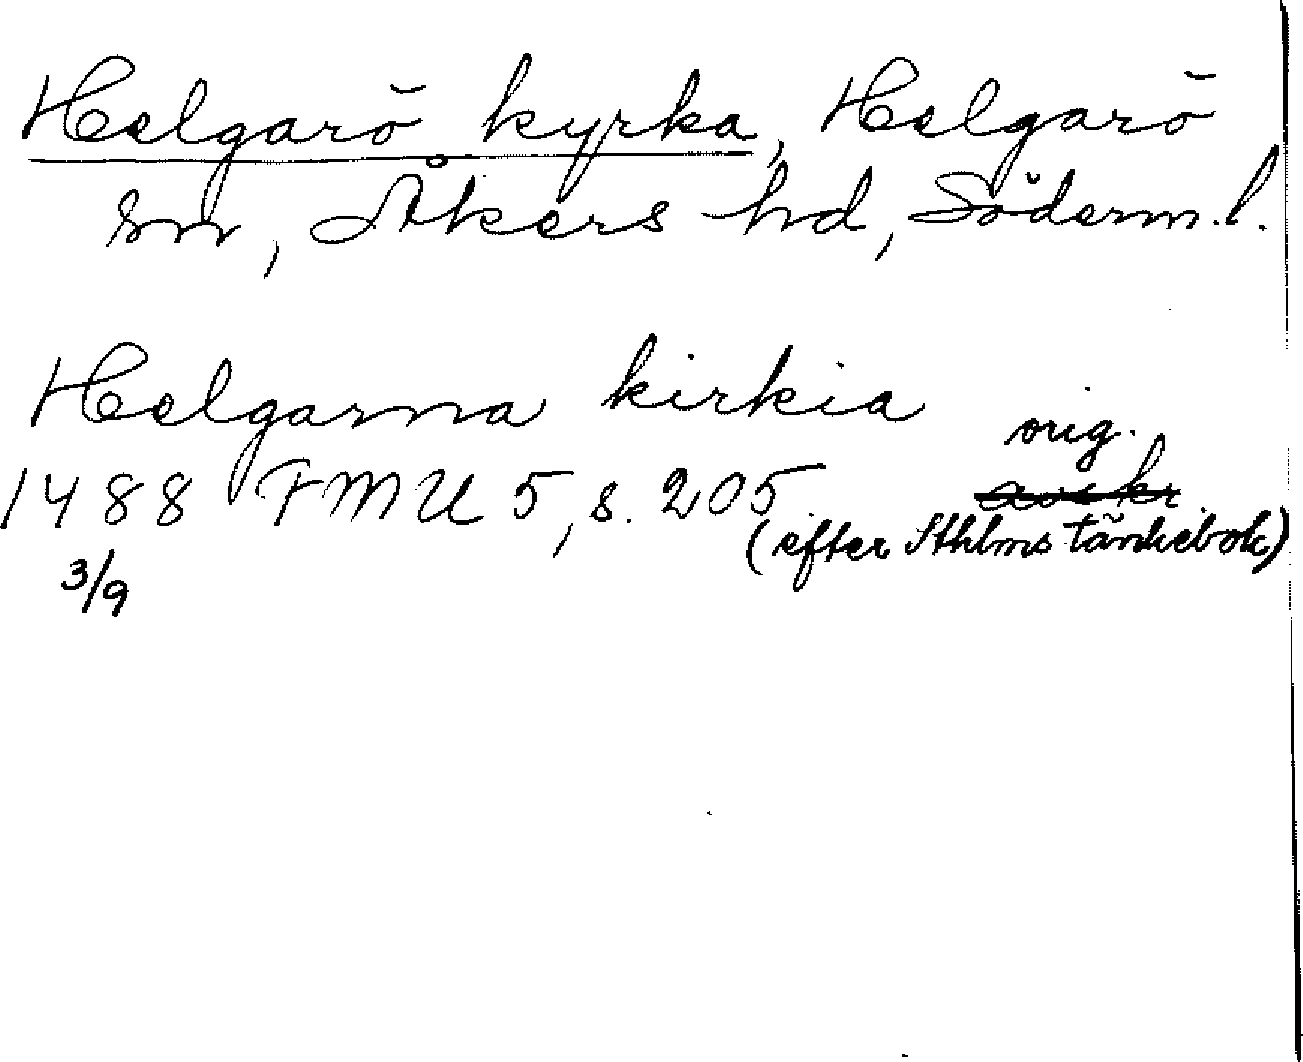 Helgarö kyrka, Helgarö
sn, Åkers hd, Söderm.l.
Helgarna kirkia
orig.
1488 FMU 5, s. 205
(efter Sthlms tänkebok)
3/9